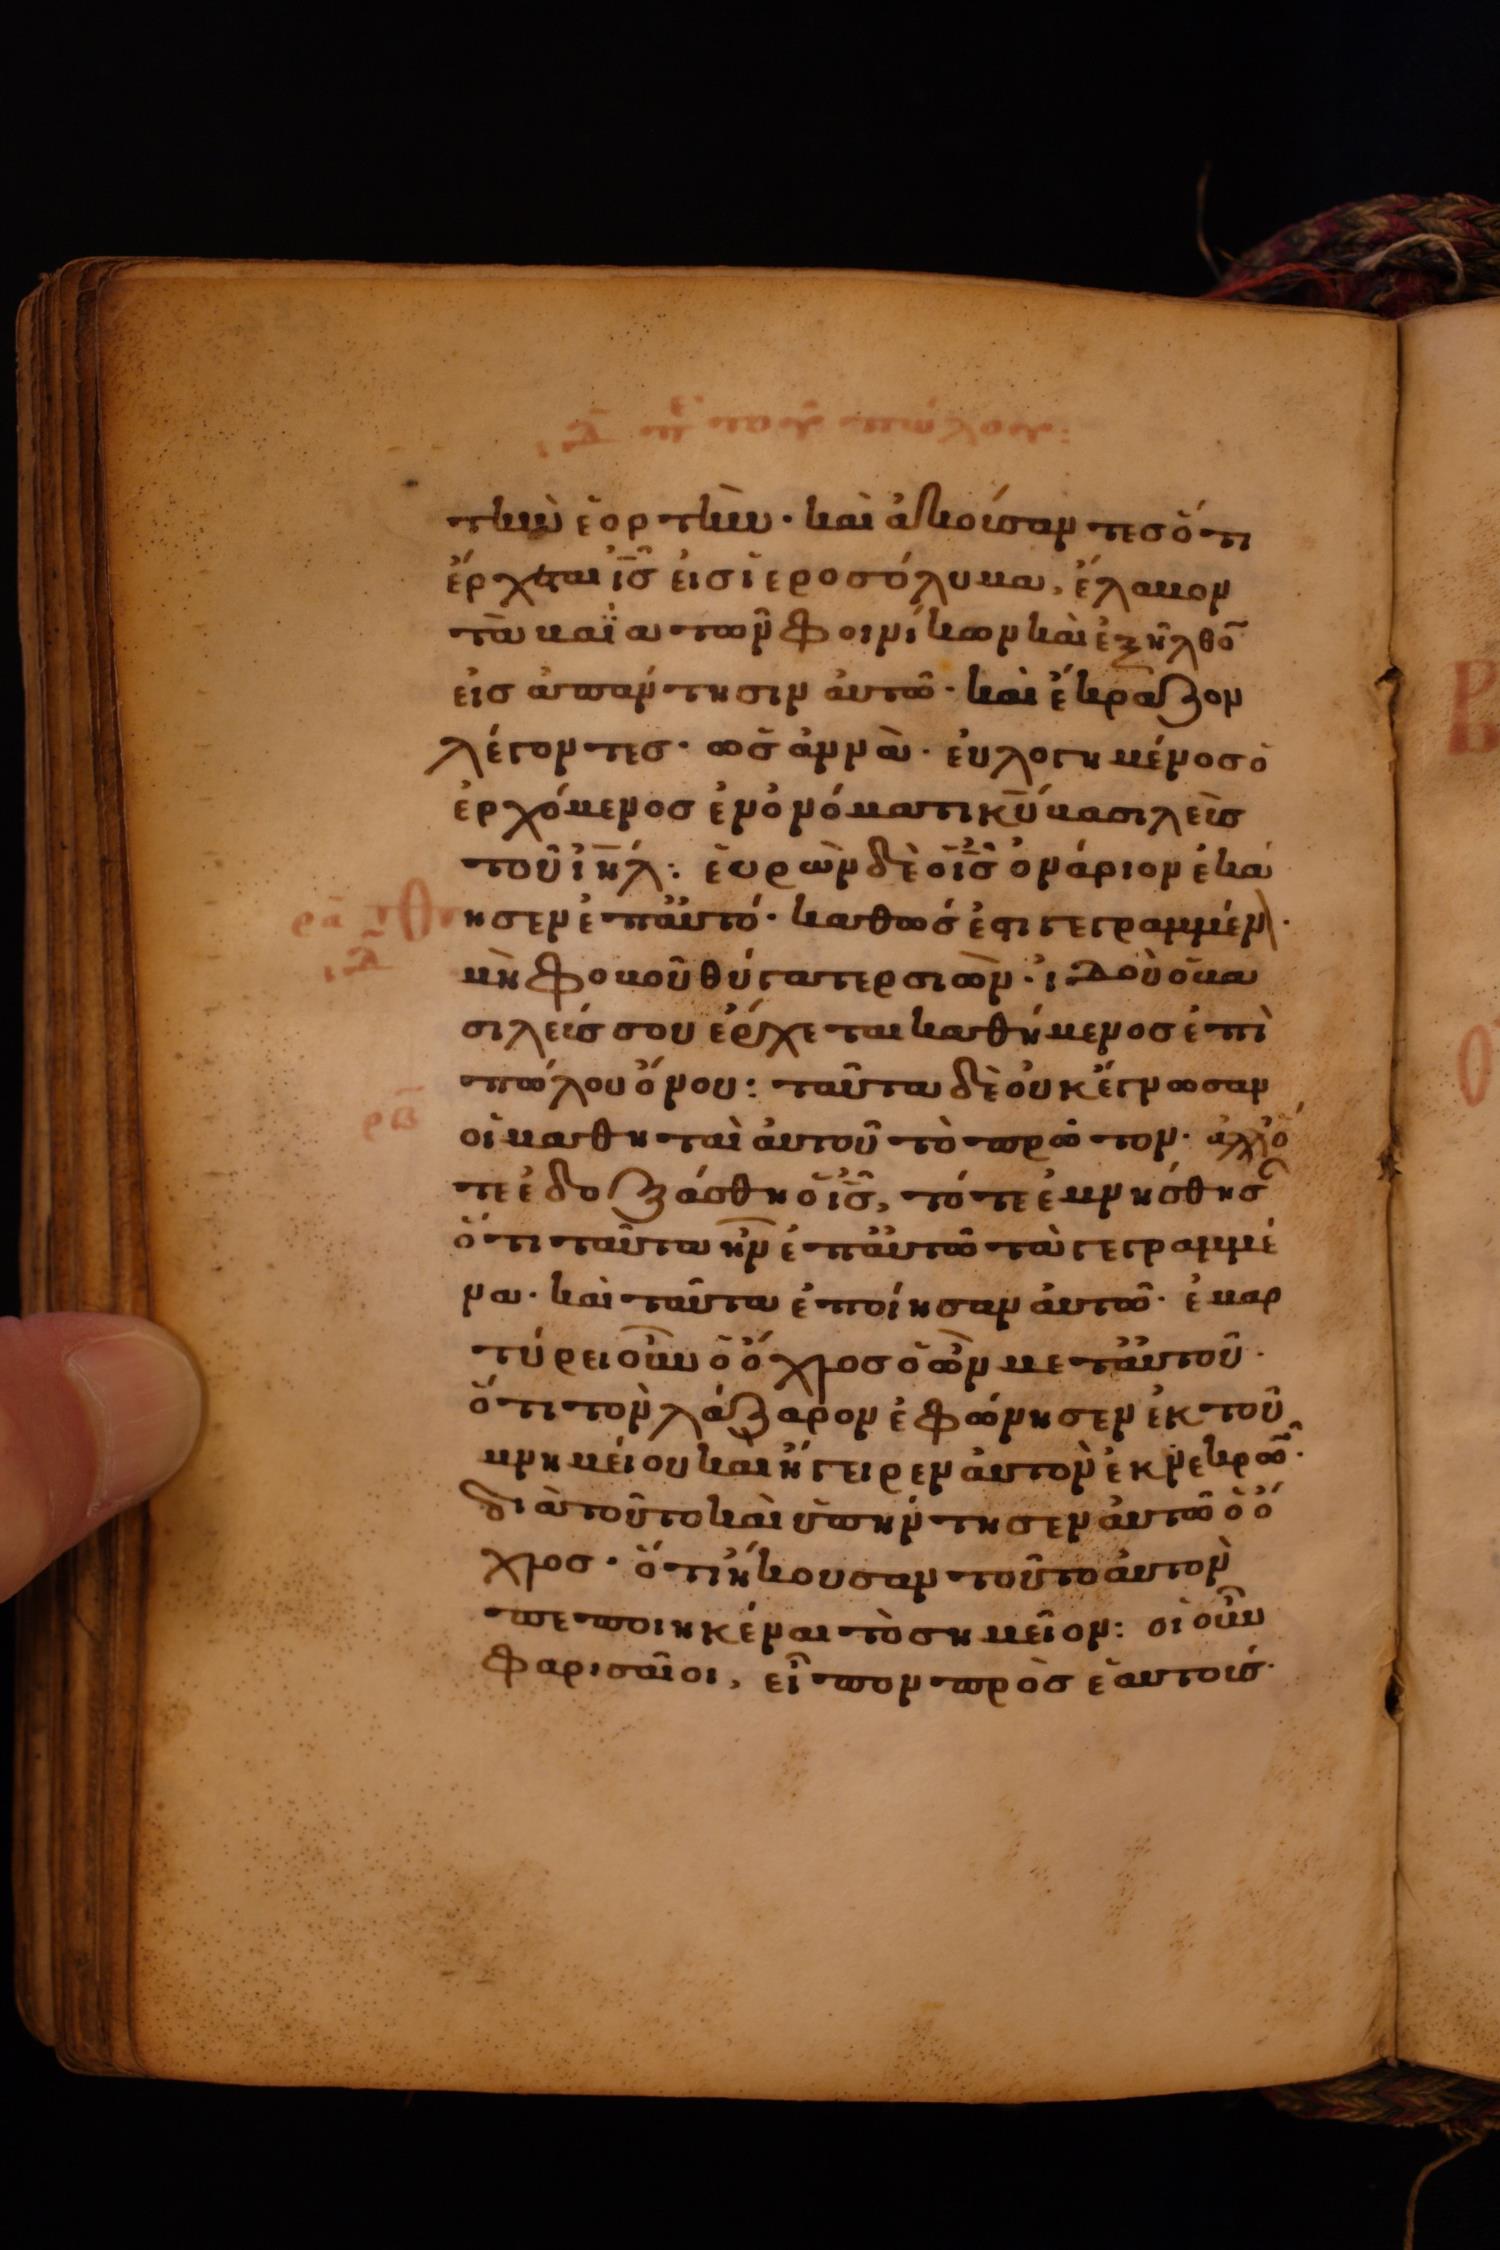 ιδ πε του πώλου:
τὴν ἑορτὴν· καὶ ἀκούσαντες ὅτι
ἔρχεται ἰς̅ εἰς ἱεροσόλυμα, ἔλαβον
τὰ βαΐα τῶν φοινίκων καὶ ἐξῆλθο̅
εἰς ἀπάντησιν ἀυτῶ· καὶ ἔκραζον
λέγοντες· ὡσἀννὰ· ἐυλογημένος ὁ
ἐρχόμενος ἐν ὀνόματι κ̅υ̅ βασιλεὺς
τοῦ ἰη̅λ: ἑυρὼν δὲ ὁ ἰς̅ ὀνάριον ἐκά
θησεν ἐπ' ἀυτό· καθώς ἐστι γεγραμμέν\·
μὴ φοβοῦ θύγατερ σιὼν· ἰδοὺ ὁ βα
σιλεύς σου ἔρχεται καθήμενος ἐπὶ
πώλου ὄνου: ταῦτα δὲ ὀυκ ἔγνωσαν
οἱ μαθηταὶ ἀυτοῦ τὸ πρῶτον· ἀλλ' ὅ
τε ἐδοξάσθη ὁ ἰς̅, τότε ἐμνήσθησ
ὅτι ταῦτα ἦν ἐπ' ἀυτῶ τὰ γεγραμμέ
να· καὶ ταῦτα ἐποίησαν ἀυτῶ· ἐμαρ
τύρει οὖν ὁ ὄχλος ὁ ὢν μετ' ἀυτοῦ·
ὅτι τὸν λάζαρον ἐφώνησεν ἐκ τοῦ
μνημείου καὶ ἤγειρεν ἀυτὸν ἐκ νεκρῶ̅·
διὰ τοῦτο καὶ ὑπήντησεν ἀυτῶ ὁ ὄ
χλος· ὅτι ἤκουσαν τοῦτο ἀυτὸν
πεποιηκέναι τὸ σημεῖον: οἱ οὖν
φαρισαῖοι, εἶπον πρὸς ἑαυτούς·
ρα
ιδ
ρβ